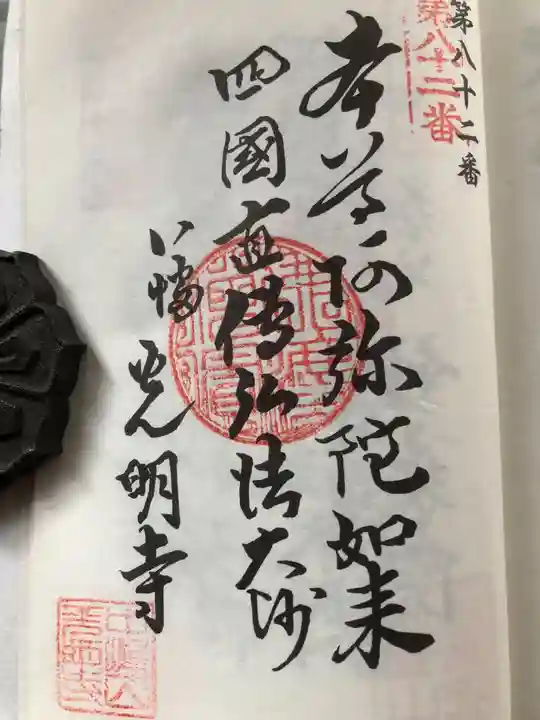 第八十二番
第八十二番
本尊阿弥陀如来
四國直傳弘法大師
八幡光明寺